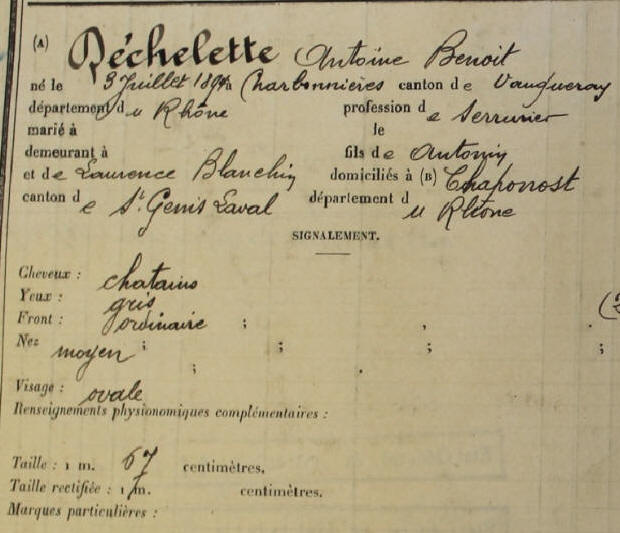 (A) Déchelette Antoine Benoit
né le 3 Juillet à Charbonnières canton de Vaugneray
département du Rhône profession de Serrurier
marié à le
demeurant à fils de Antonin
et de Laurence Blanchin domiciliés à (B) Chaponost
canton de St Genis Laval département du Rhône
SIGNALEMENT.
Cheveux : chatains
Yeux : gris
Front : ordinaire ; , .
Nez moyen ; ; ; ;
; .
Visage : ovale
Renseignements physionomiques complémentaires :
Taille : 1 m. 67 centimètres.
Taille rectifiée : 1 m. centimètres.
Marques particulières :